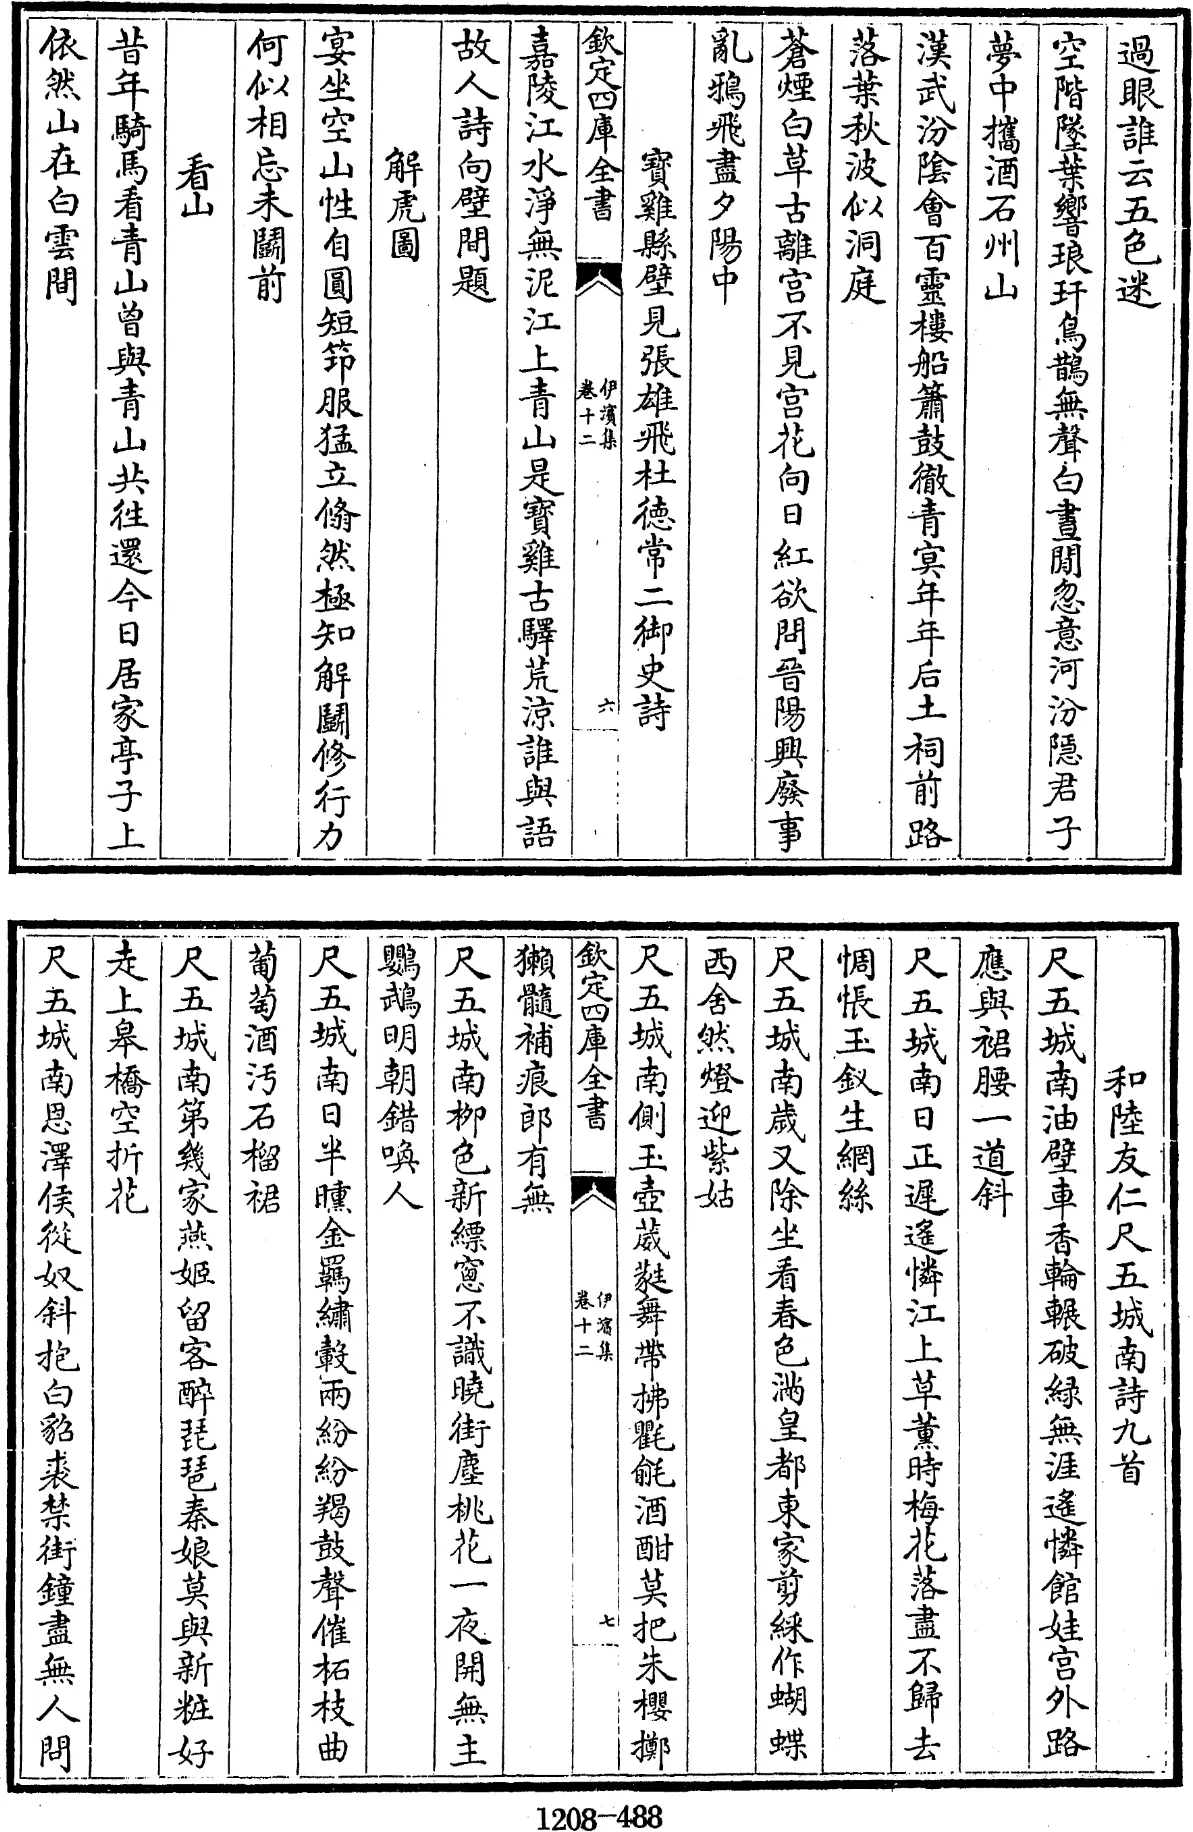 過眼誰云五色迷
空階墜葉響琅玕烏鵲無聲白晝閒忽意河汾隱君子
夢中攜酒石州山
漢武汾陰會百靈樓船簫鼓徹青冥年年后土祠前路
落葉秋波似洞庭
蒼煙白草古離宮不見宮花向日紅欲問晉陽興廢事
亂鴉飛盡夕陽中
寶雞縣壁見張雄飛杜德常二御史詩
欽定四庫全書
伊濱集
卷十二
六
嘉陵江水淨無泥江上青山是寶雞古驛荒涼誰與語
故人詩向壁間題
解虎圖
宴坐空山性自圓短笻服猛立翛然極知解鬭修行力
何似相忘未鬭前
看山
昔年騎馬看青山曾與青山共徃還今日居家亭子上
依然山在白雲間
和陸友仁尺五城南詩九首
尺五城南油壁車香輪輾破綠無涯遙憐館娃宮外路
應與裙腰一道斜
尺五城南日正遲遙憐江上草薰時梅花落盡不歸去
惆悵玉釵生網絲
尺五城南歲又除坐看春色滿皇都東家剪綵作蝴蝶
西舍然燈迎紫姑
尺五城南側玉壺葳蕤舞帶拂氍毹酒酣莫把朱櫻擲
獺髓補痕郎有無
欽定四庫全書
伊濱集
卷十二
七
尺五城南柳色新縹窻不識曉街塵桃花一夜開無主
鸚鵡明朝錯喚人
尺五城南日半曛金羈繡轂兩紛紛羯鼓聲催柘枝曲
葡萄酒汚石榴裙
尺五城南第幾家燕姬留客醉琵琶秦娘莫與新粧好
走上皋橋空折花
尺五城南恩澤侯從奴斜抱白貂裘禁街鐘盡無人問
1208-488